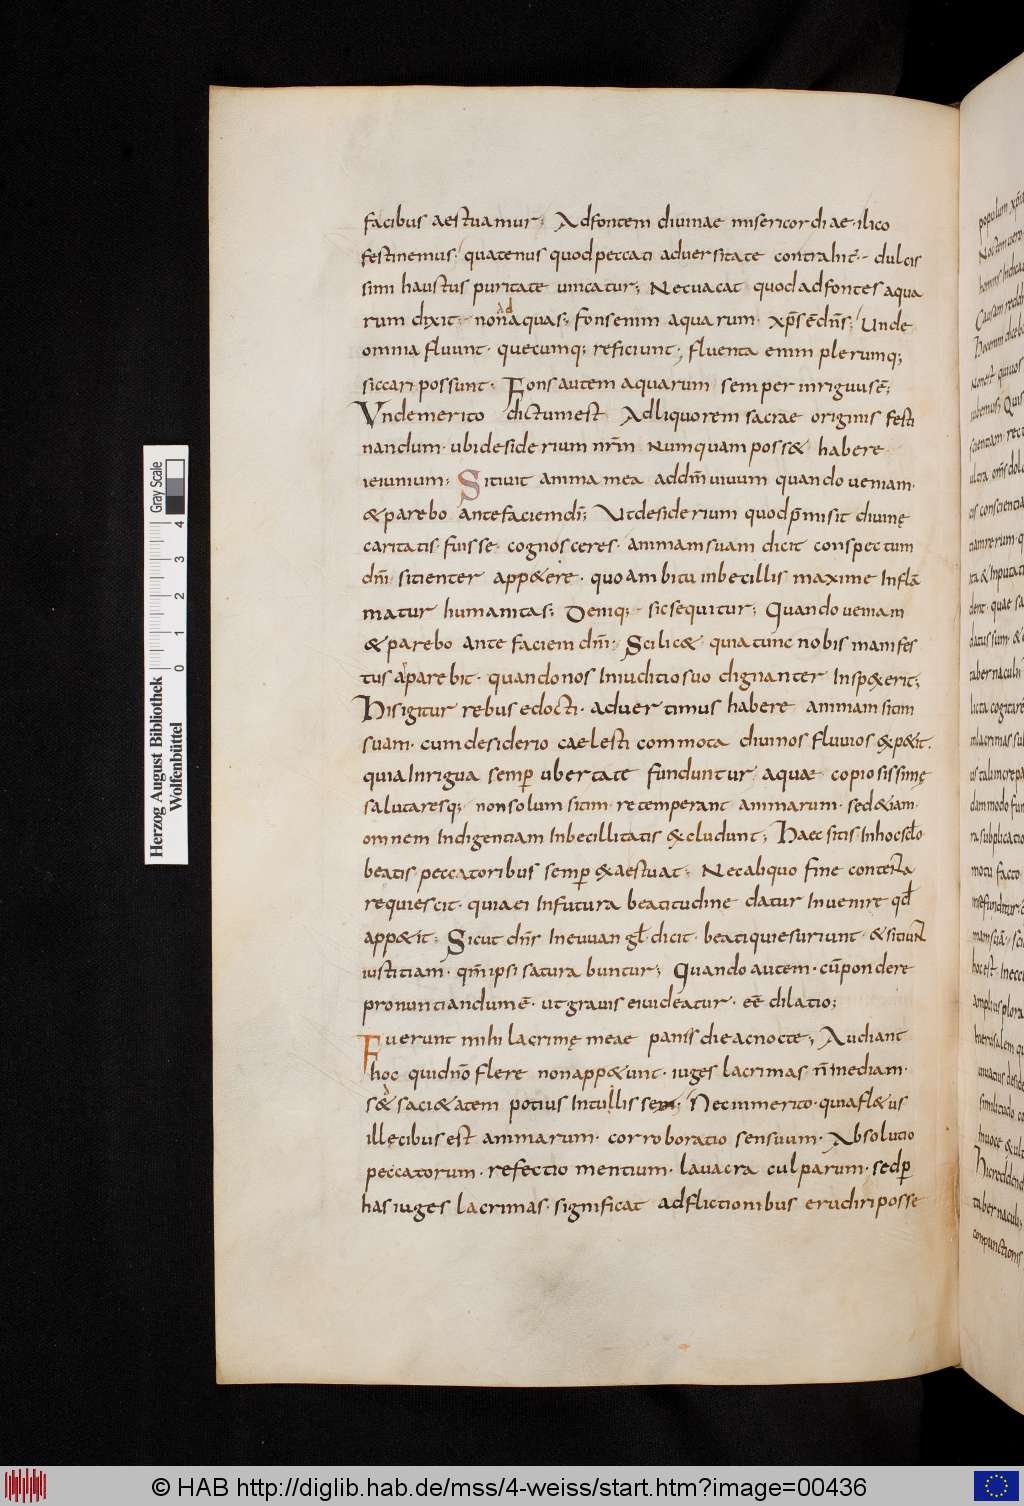 facibus aestuamur; Ad fontem diuinae misericordiae · ilico
festinemus; quatenus quod peccati aduersitate contrahit̄ · dulcis
simi haustus puritate uincatur; Nec uacat quod ad fontes aqua
rum dixit · non ad aquas; fons enim aquarum · xp̄s ē dn̄s; Unde
omnia fluunt · quecumq; reficiunt; fluenta enim plerumq;
siccari possunt · Fons autem aquarum semper inriguus ē;
Unde merito dictum est Ad liquorem sacrae originis festi
nandum · ubi desiderium nr̄m numquam poss& habere
ieiunium; Sitiuit anima mea ad dm̄ uiuum quando ueniam ·
& parebo ante faciem di̅; Ut desiderium quod p̄misit diuinę
caritatis fuisse cognosceres · animam suam dicit conspectum
dn̄i sitienter app&ere · quo ambitu inbecillis maxime inflā
matur humanitas; Deniq; sic sequitur; Quando ueniam
& parebo ante faciem dn̄i; Scilic& quia tunc nobis manifes
tus apparebit · quando nos in iuditio suo dignanter insp&erit;
His igitur rebus edocti · aduertimus habere animam sitim
suam · cum desiderio caelesti commota diuinos fluuios exp&it ·
quia inrigua semp̄ ubertate funduntur aquae copiosissimę
salutaresq; non solum sitim retemperant animarum · sed & iam ·
omnem indigentiam inbecillitatis excludunt; Haec sitis in hoc sc̄lo
beatis peccatoribus semp̄ exaestuat; Nec aliquo fine contenta
requiescit · quia ei in futura beatitudine datur inuenire qd̄
app&it; Sicut dn̄s in euuangł dicit · beati qui esuriunt · & sitiunt
iustitiam · qm̄ ipsi saturabuntur; Quando autem · cū pondere
pronuntiandum ē · ut grauis ei uideatur · eē dilatio;
Fuerunt mihi lacrimę meae panis die ac nocte; Audiant
hoc qui dn̄o flere non app&unt · iuges lacrimas n̄ inediam ·
s& saci&atem potius intulisse; Nec inmerito · quia fl&us
illęcibus est animarum · corroboratio sensuum · Absolutio
peccatorum · refectio mentium · lauacra culparum · sed p̄
has iuges lacrimas · significat adflictionibus erudiri posse
Herzog August Bibliothek
Wolfenbüttel
0 1 2 3 4
Gray Scale
© HAB http://diglib.hab.de/mss/4-weiss/start.htm?image=00436